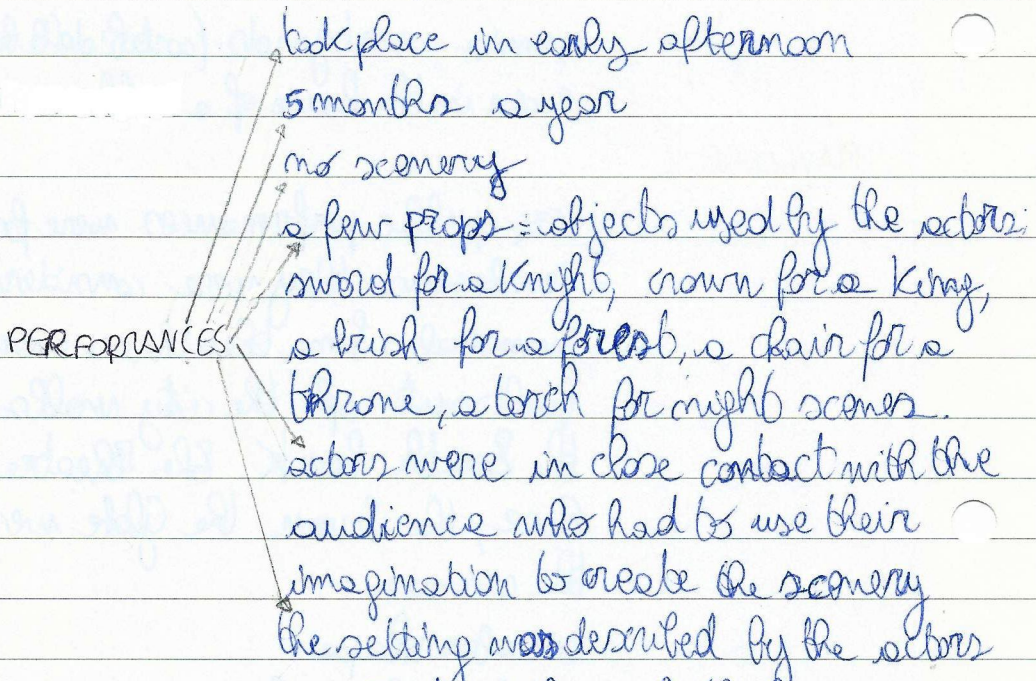 took place in early afternoon
5 months a year
no scenery
a few props = objects used by the actors:
sword for a knight, crown for a king,
PERFORMANCES
a brish for a forest, a chair for a
throne, a torch for night scenes.
actors were in close contact with the
audience who had to use their
imagination to create the scenery
the setting was described by the actors